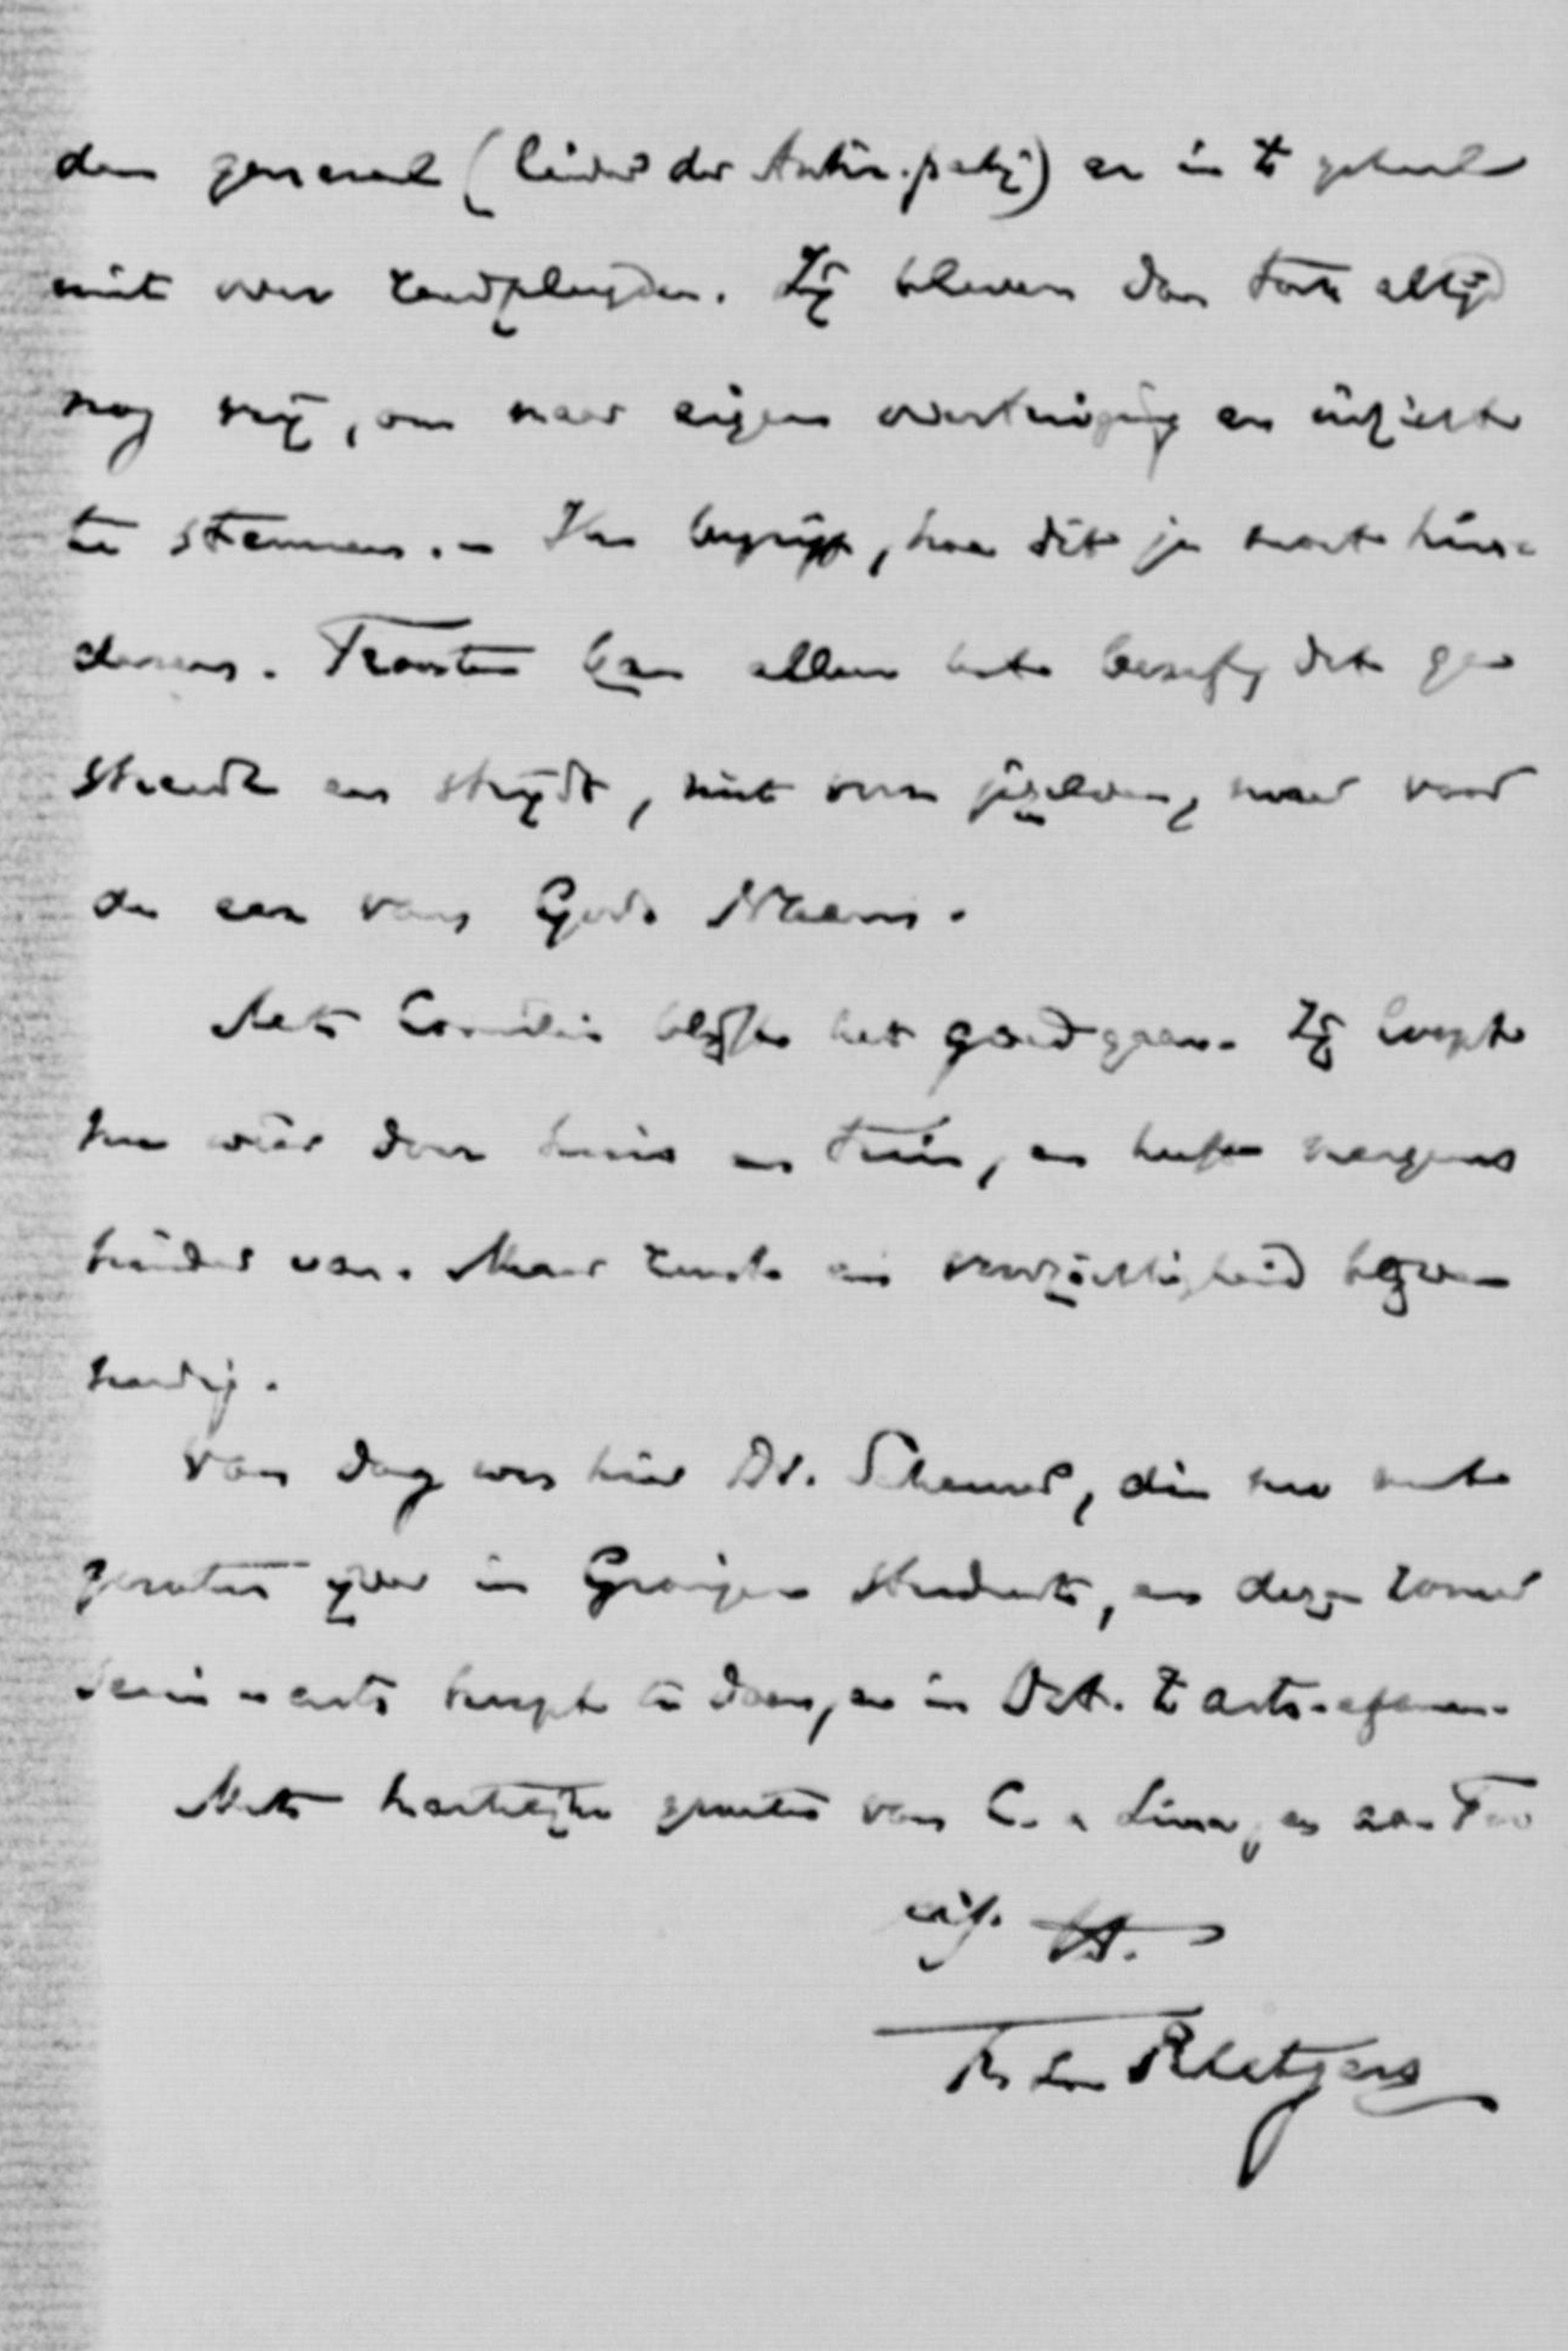 den generaal (leider der Antir. partij) er in 't geheel
niet over raadpleegden. Zij bleven dan toch altijd
nog vrij, om naar eigen overtuiging en inzicht
te stemmen. – Ik begrijp, hoe dit je moet hin-
deren. Troosten kan alleen het besef, dat ge
streedt en strijdt, niet voor jezelven, maar voor
de eer van Gods Naam.
Met Cornelie blijft het goed gaan. Zij loopt
nu weer door huis en tuin, en heeft nergens
hinder van. Maar rust en voorzichtigheid blijven
noodig.
Van daag was hier Dr. Scheurer, die nu met
groote ijver in Groningen studeert, en dezen zomer
semi-arts hoopt te doen, en in Oct. 't arts-examen.
Met hartelijke groeten van C. en Lina, en aan Too
uw
Rutgers